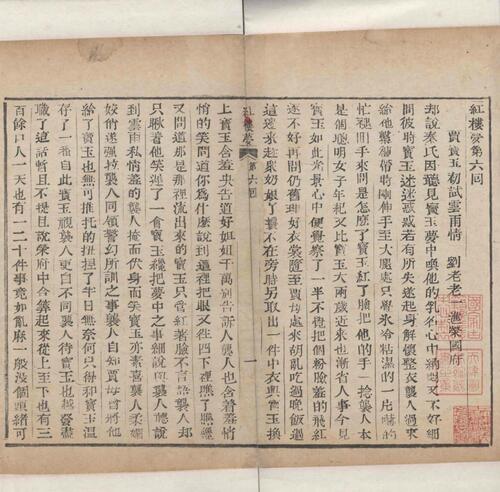 紅樓夢第六回
賈寶玉初試雲雨情 劉老老一進榮國府
却說秦氏因聽見寶玉夢中喚他的乳名心中納悶又不好細
問彼時寶玉迷迷惑惑若有所失遂起身解懷整衣襲人過來
給他繫褲帶時剛伸手至大腿處只覺冰冷粘濕的一片嚇的
忙褪回手來問是怎麼了寶玉紅了臉把他的手一捻襲人本
是個聰明女子年紀又比寶玉大兩歲近來也漸省人事今見
寶玉如此光景心中便覺察了一半不覺把個粉臉羞的飛紅
遂不好再問仍舊理好衣裳隨至賈母處來胡亂吃過晚飯過
這邊來趁衆奶娘丫鬟不在旁時另取出一件中衣與寶玉換
紅樓夢 第六回 一
上寶玉含羞央告道好姐姐千萬別告訴人襲人也含着羞悄
悄的笑問道你爲什麼說到這裡把眼又往四下裡瞧了瞧纔
又問道那是那裡流出來的寶玉只管紅着臉不言語襲人却
只瞅着他笑遲了一會寶玉纔把夢中之事細說與襲人聽說
到雲雨私情羞的襲人掩面伏身而笑寶玉亦素喜襲人柔媚
姣俏遂强拉襲人同領警幻所訓之事襲人自知賈母曾將他
給了寶玉也無可推托的扭捏了半日無奈何只得和寶玉溫
存了一番自此寶玉視襲人更自不同襲人待寶玉也越發盡
職了這話暫且不提且說榮府中合算起來從上至下也有三
百餘口人一天也有一二十件事竟如亂麻一般沒個頭緒可